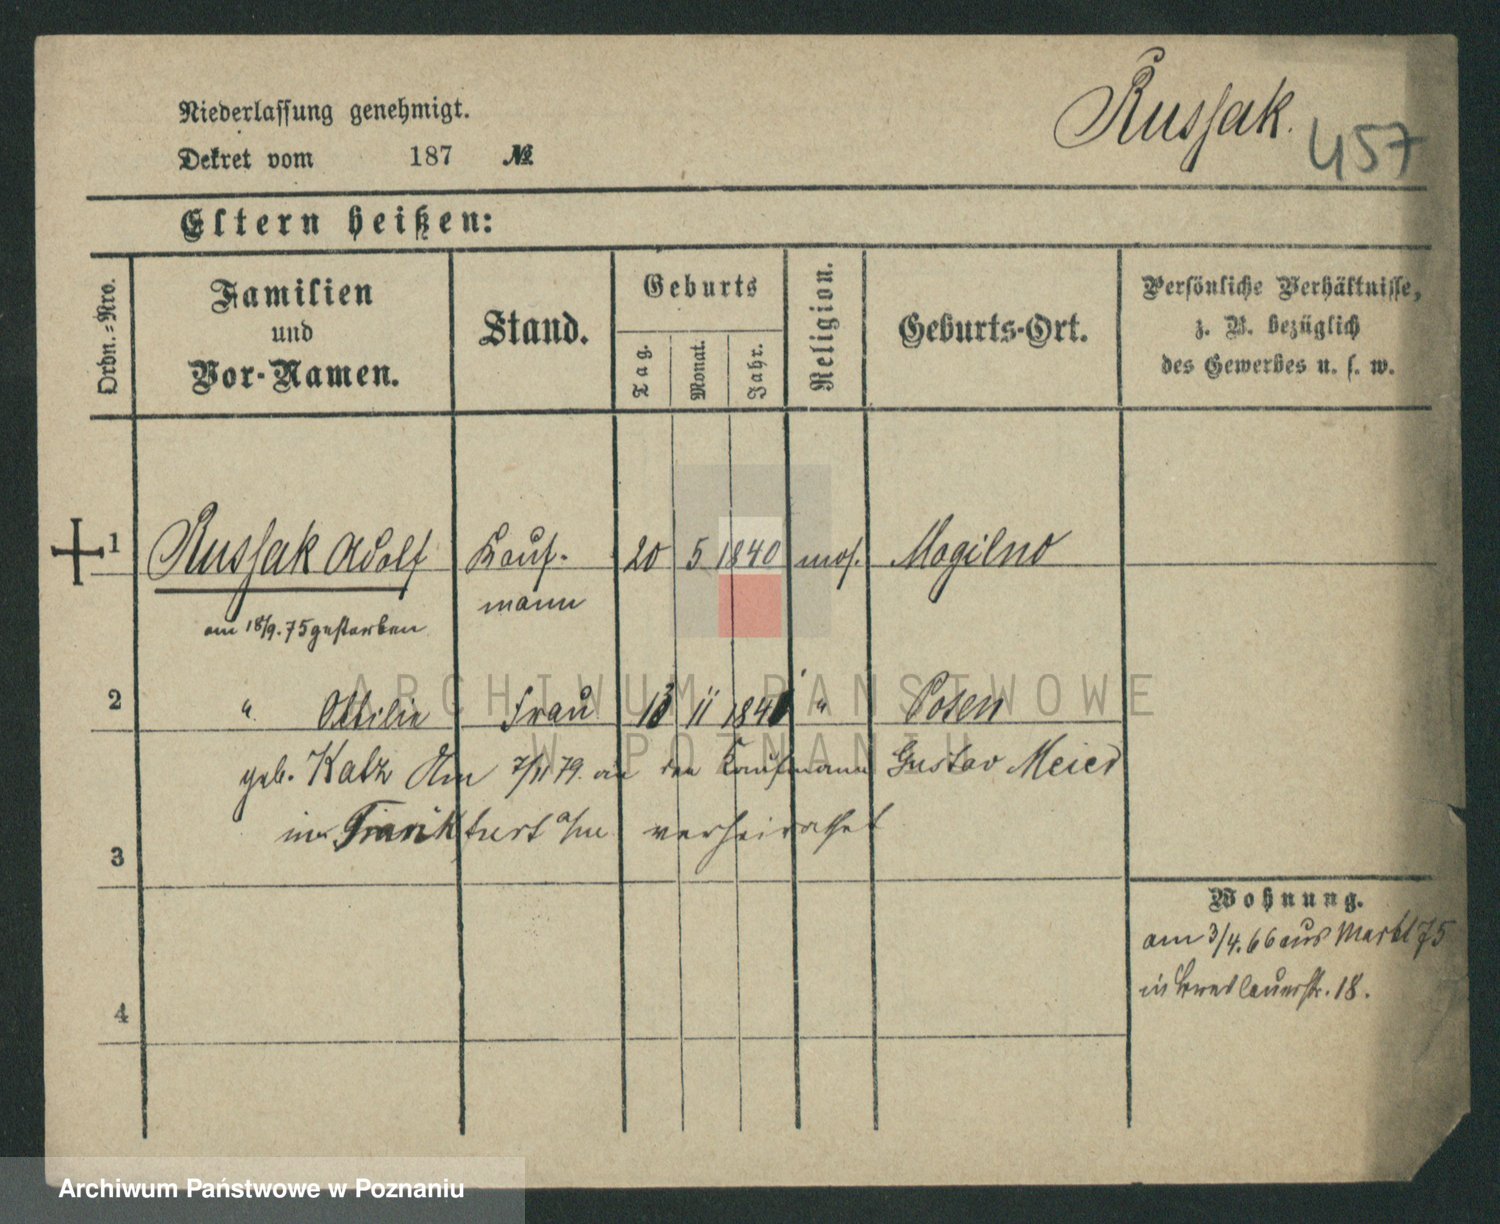 Russak.
457
Niederlassung genehmigt.
Dekret vom 187 №
Eltern heißen:
Ordn.-Nro.
Familien und Vor-Namen.
Stand.
Geburts
Tag.
Monat.
Jahr.
Religion.
Geburts-Ort.
Persönliche Verhältnisse,
z. B. bezüglich
des Gewerbes u. s. w.
1 Russak Adolf Kauf- 20 5 1840 mos. Mogilno
mann
am 18/9. 75 gestorben
2 " Ottilie Frau 11 " Posen
geb. Katz Am 7/11 79. an den Kaufmann Gustav Meier
in Frankfurt a/m verheirathet
3
Wohnung.
am 3/4. 66 aus Markt 75
in Breslauerstr. 18.
4
ARCHIWUM PAŃSTWOWE
W POZNANIU
Archiwum Państwowe w Poznaniu